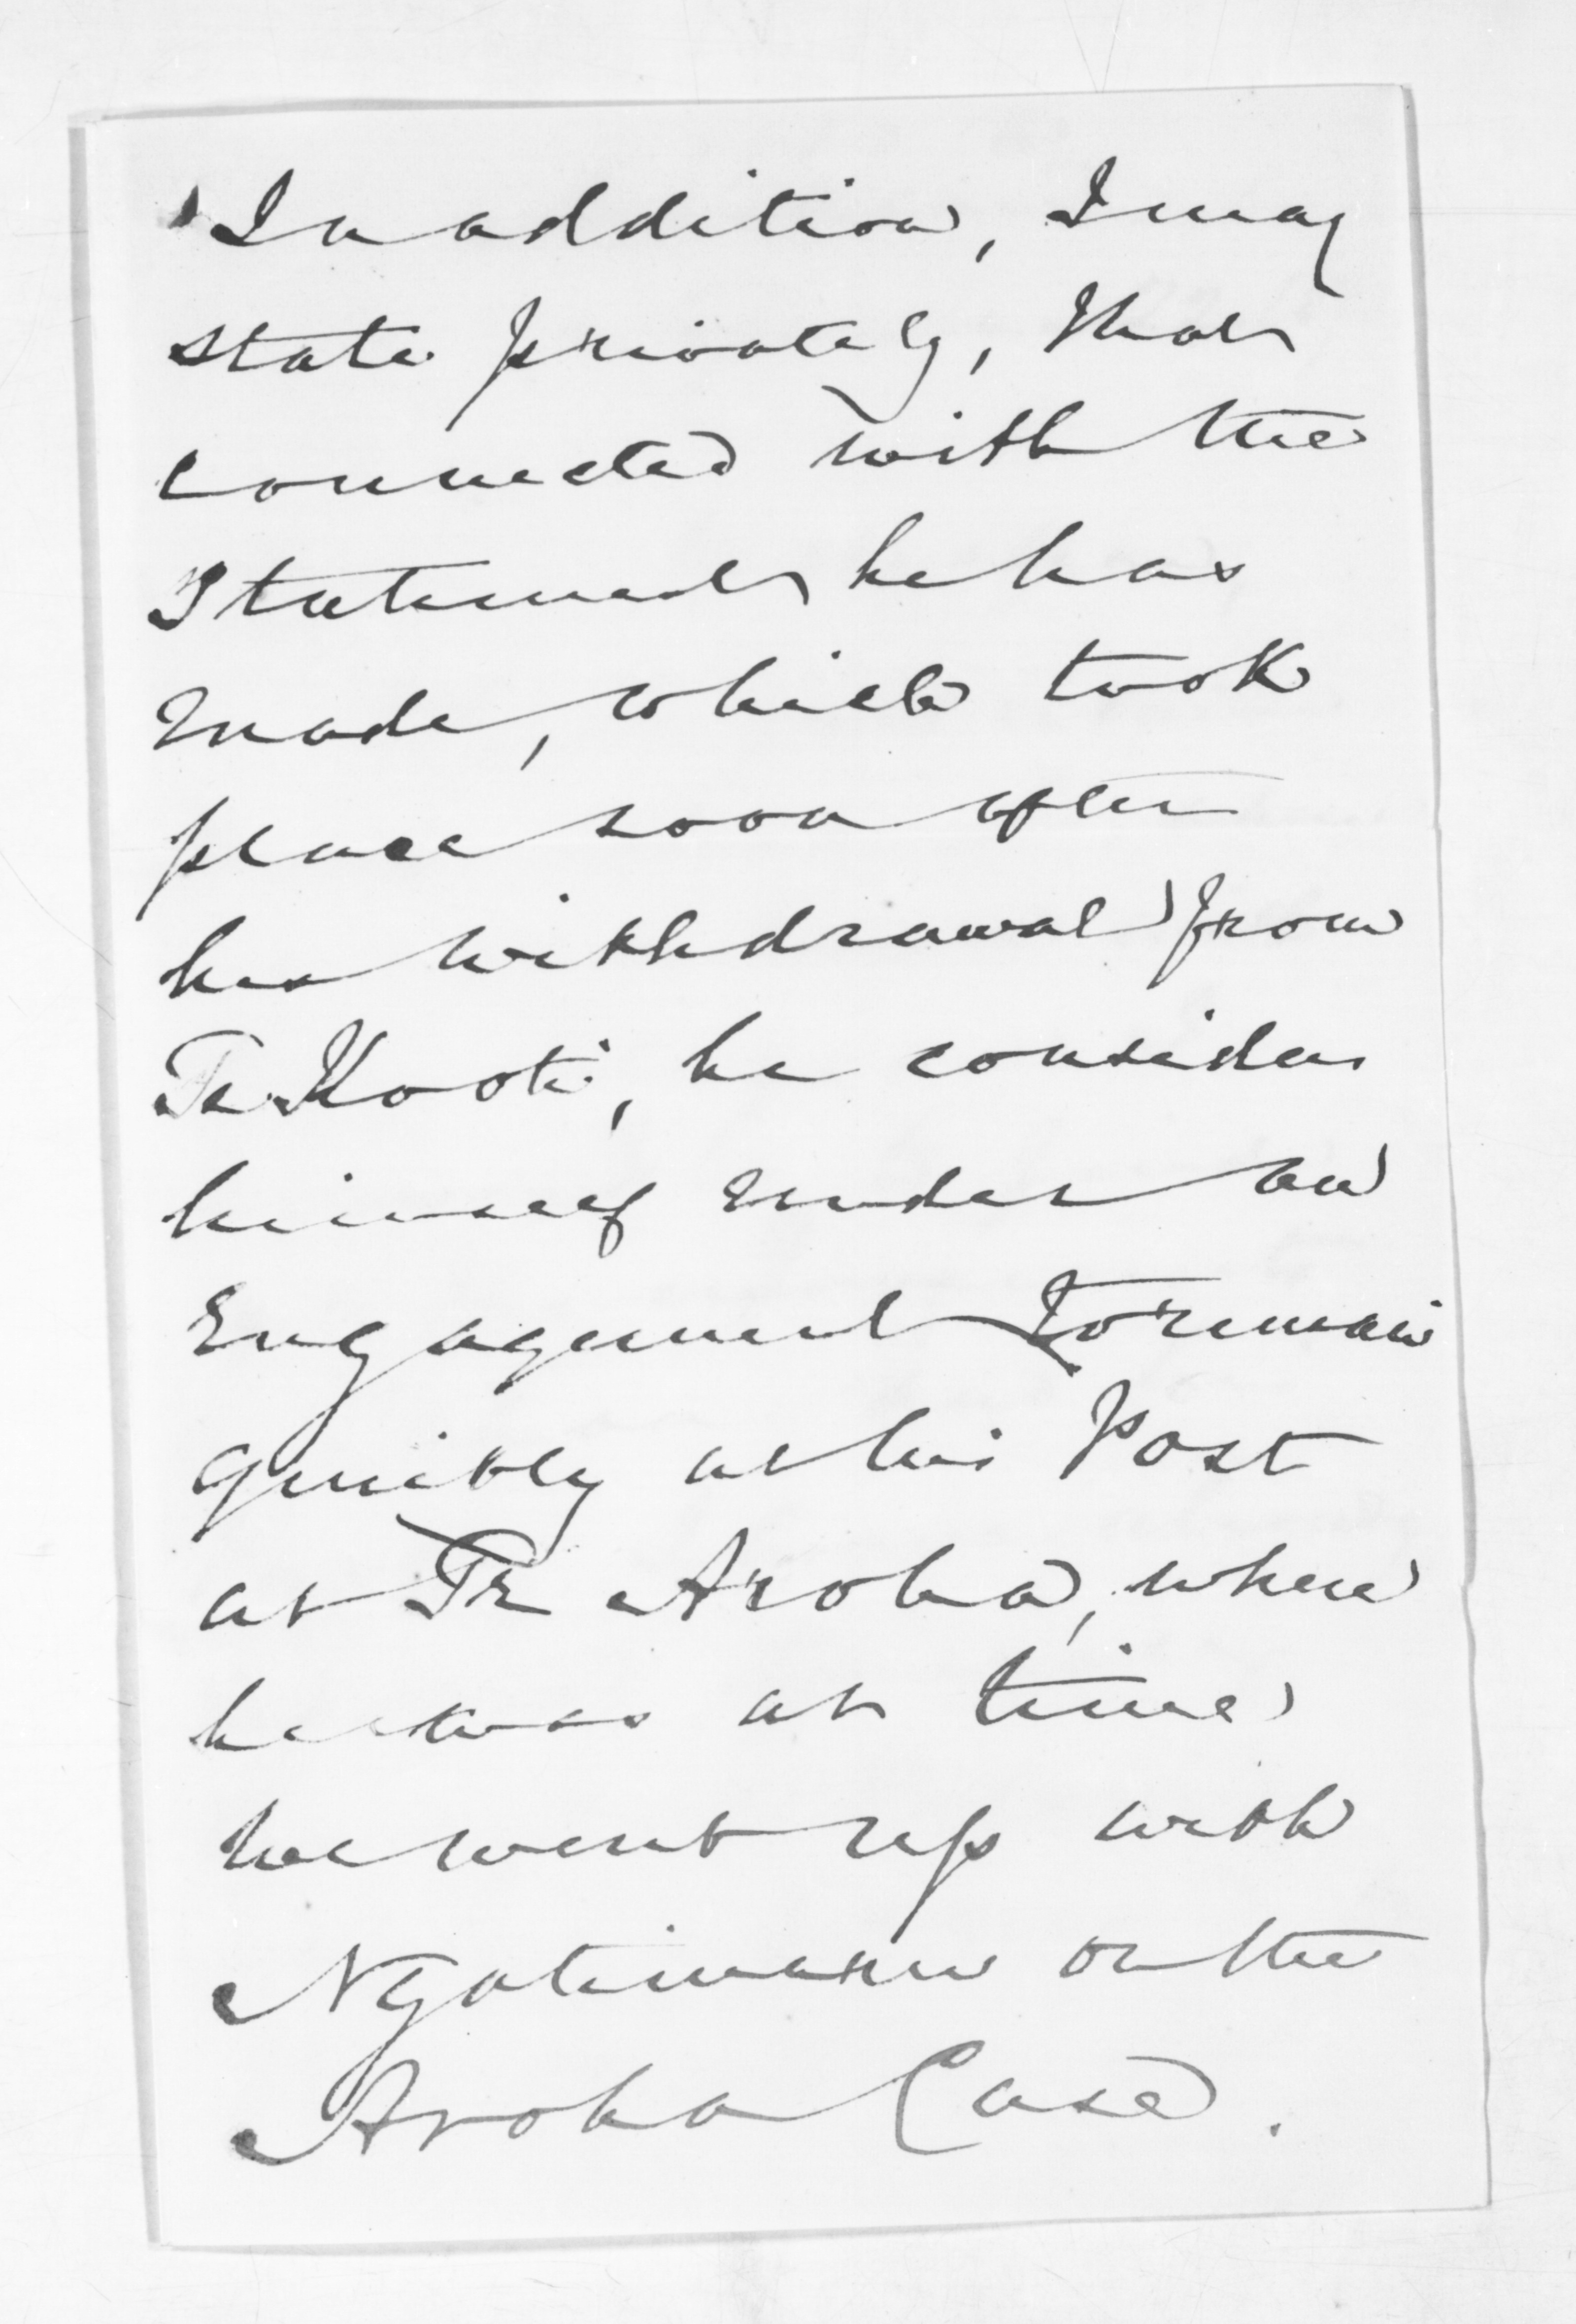 In addition, I may
state privately, that
connected with the
Statement he has
made, which took
place soon after
his withdrawal from
Te Kooti, he considers
himself under an
Engagement to remain
quietly at his Post
at Te Aroha, where
he was at time
we went up with
Ngatimaru on the
Aroha Case.